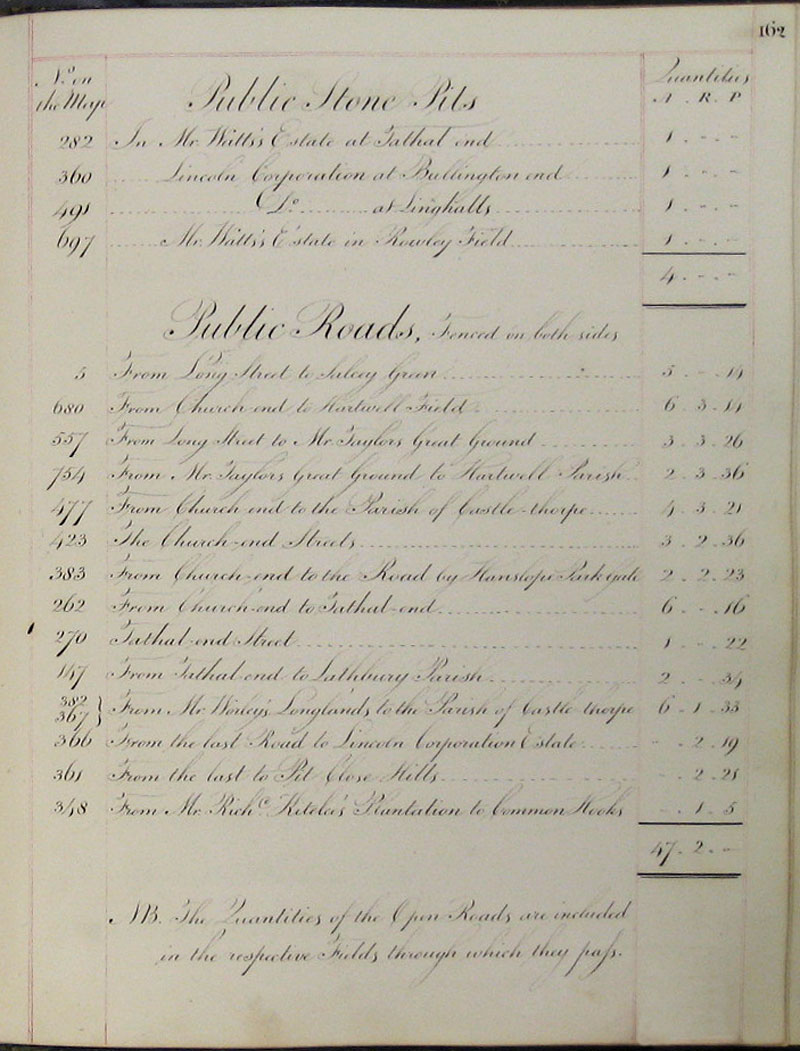 162
No. on the Map Public Stone Pits Quantities A . R . P
282 In Mr. Watts's Estate at Tathal end 1 - -
360 Lincoln Corporation at Bullington end 1 - -
491 Do. at Linghalls 1 - -
697 Mr. Watts's Estate in Rowley Field 1 - -
4 - -
Public Roads, Fenced on both sides
5 From Long Street to Salcey Green 5 - 14
680 From Church end to Hartwell Field 6 . 3 . 14
557 From Long Street to Mr. Taylors Great Ground 3 . 3 . 26
754 From Mr. Taylors Great Ground to Hartwell Parish 2 . 3 . 36
477 From Church end to the Parish of Castle-thorpe 4 . 3 . 21
423 The Church-end Streets 3 . 2 . 36
383 From Church-end to the Road by Hanslope Park Gate 2 . 2 . 23
262 From Church-end to Tathal-end 6 - 16
270 Tathal-end Street 1 - 22
147 From Tathal-end to Lathbury Parish 2 - 34
382 367 } From Mr. Worley's Longlands to the Parish of Castle-thorpe 6 . 1 . 33
366 From the last Road to Lincoln Corporation Estate - 2 . 19
361 From the last to Pit Close Hills - 2 . 21
348 From Mr. Richd. Plantation to Common Hooks - 1 . 5
47 . 2 . -
NB. The Quantities of the Open Roads are included
in the respective Fields through which they pass.